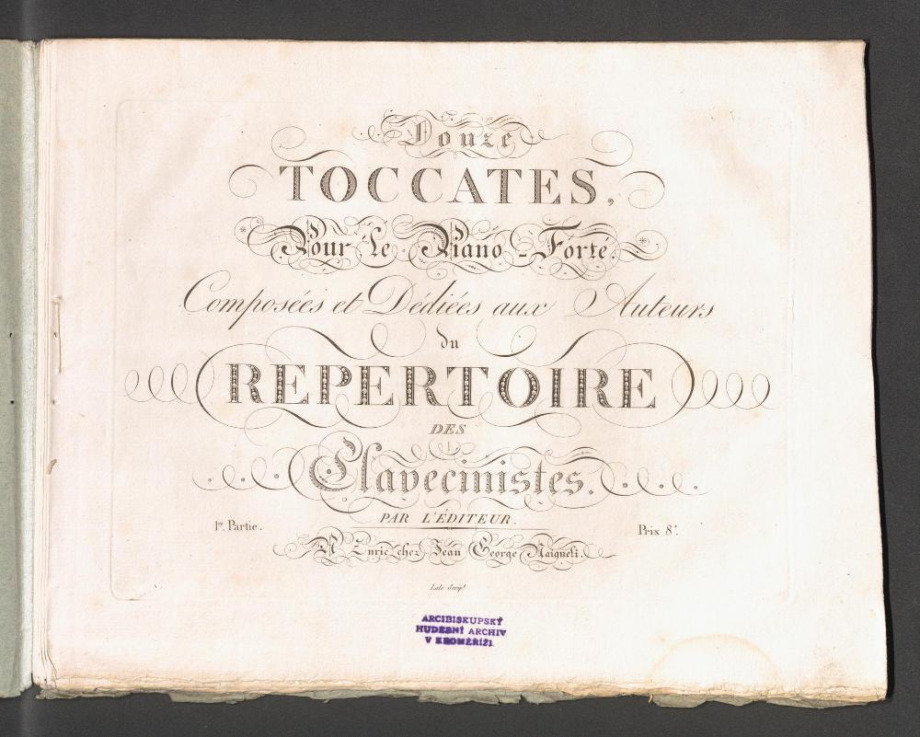 Douze
TOCCATES,
Pour Le Piano-Forté.
Composées et Dédiées aux Auteurs
du
REPERTOIRE
DES
Clavecinistes.
PAR L'ÉDITEUR.
1re. Partie.
Prix 8#.
A Zuric chez Jean George Naigueli.
Lale Script.
ARCIBISKUPSKÝ
HUDEBNÍ ARCHIV
V KROMĚŘÍŽI.